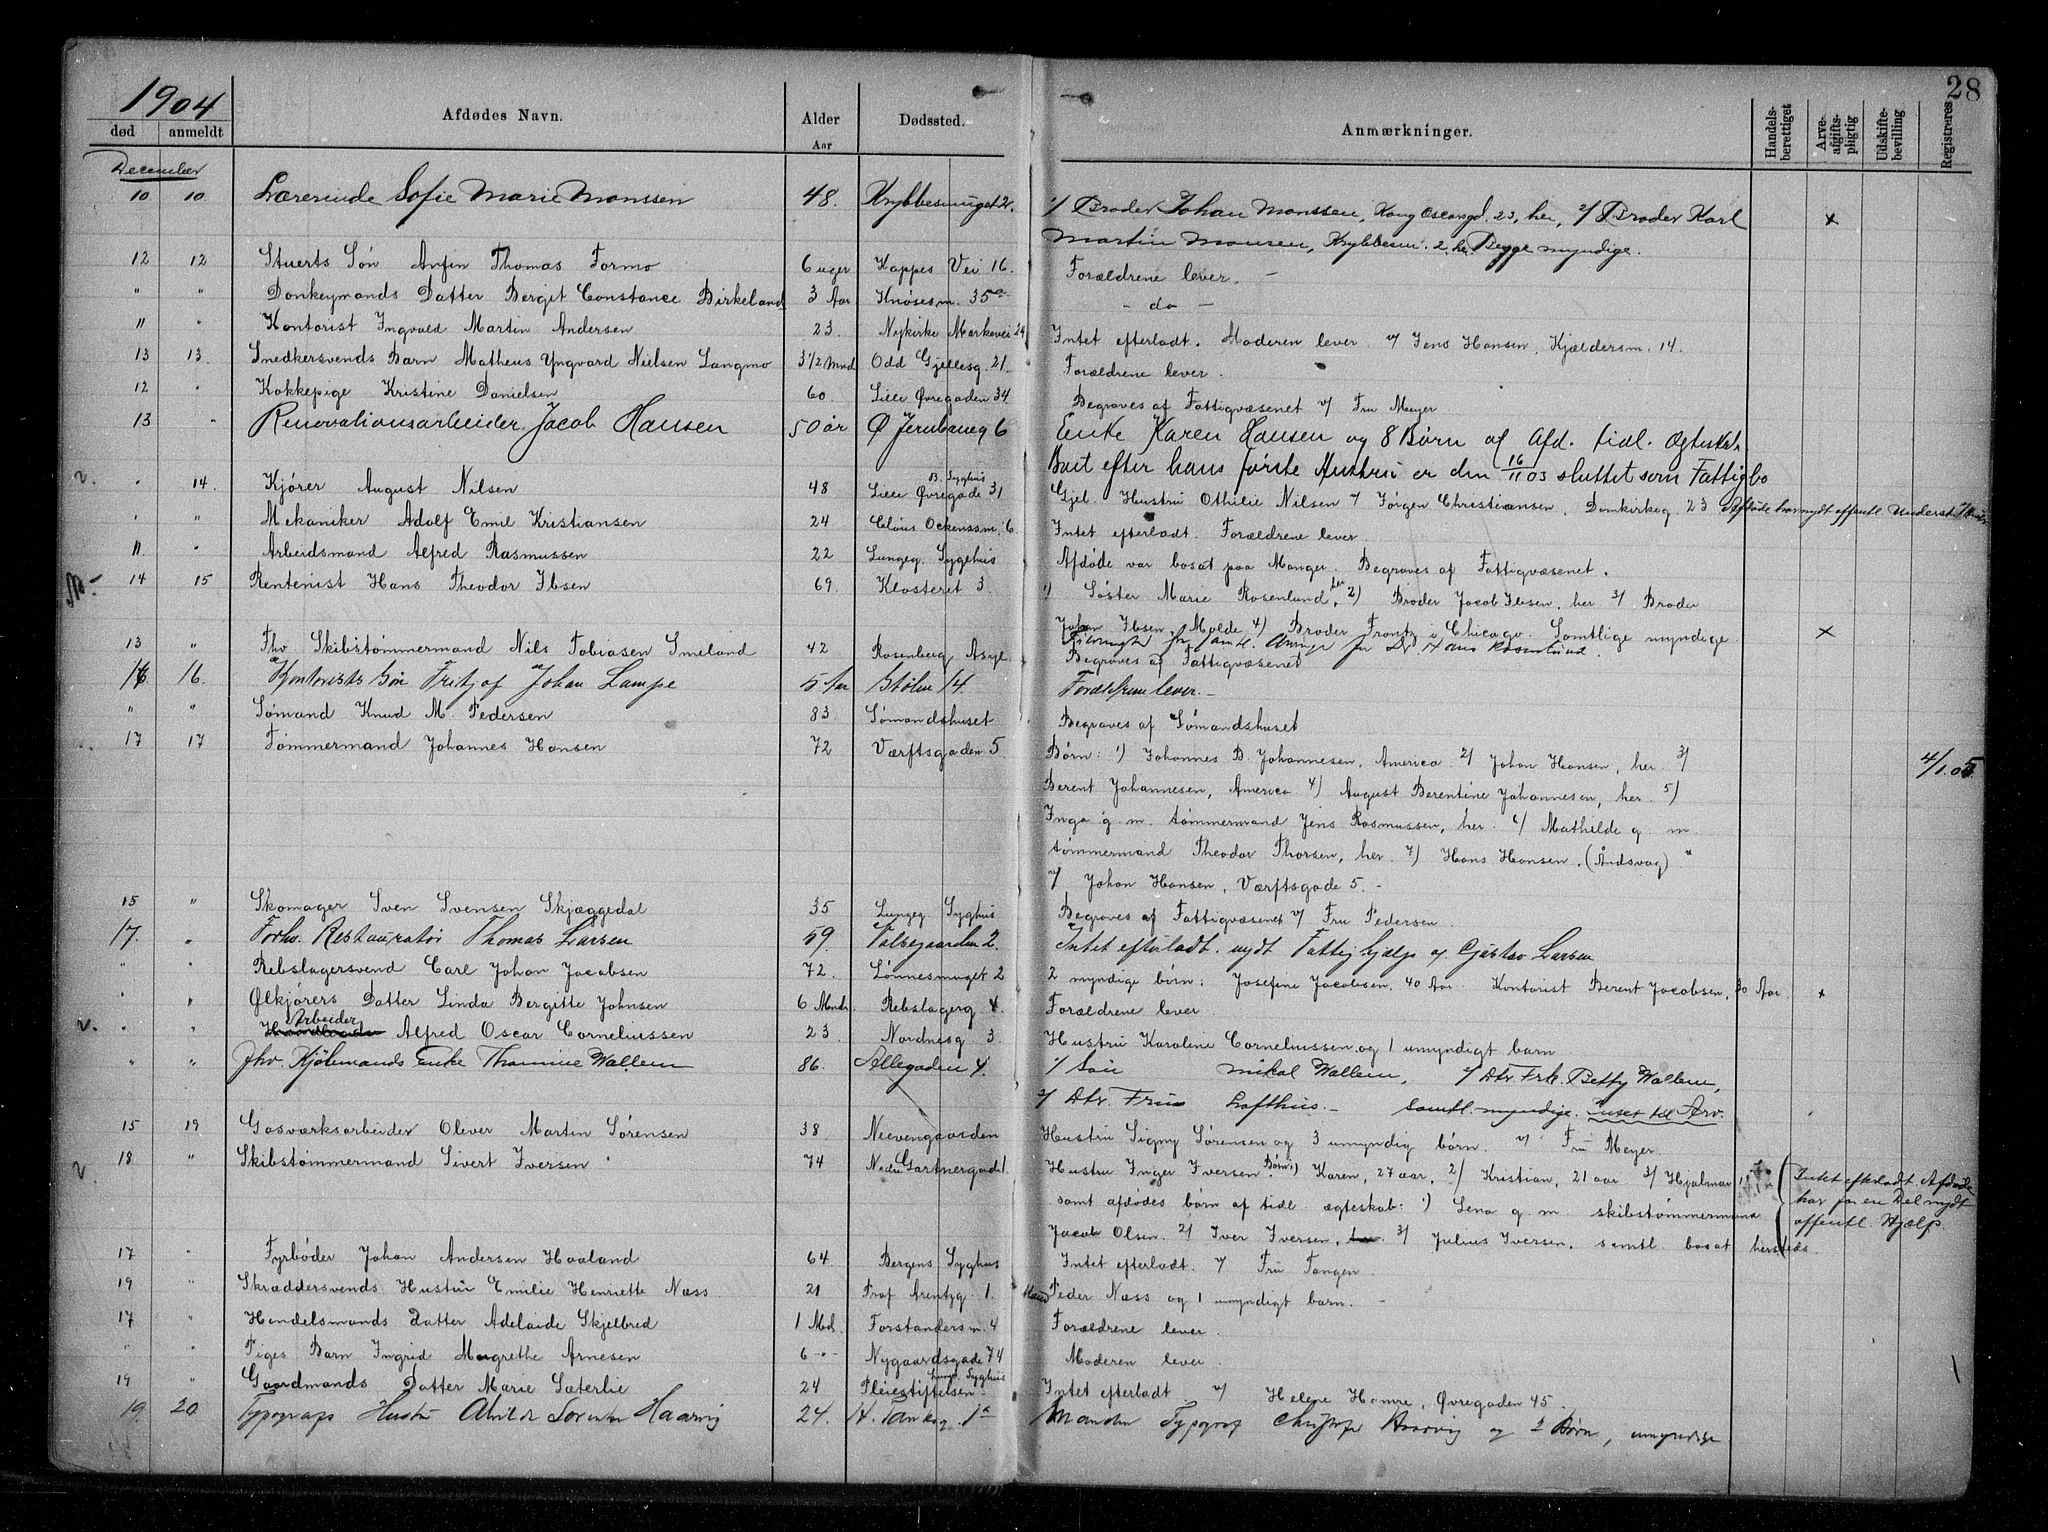 28
1904
død anmeldt Afdødes Navn. Alder Aar Dødssted. Anmærkninger. Handelsberettiget Arveafgiftspligtig Udskiftebevilling Registreres
December
10 10. Lærerinde Sofie Marie Monssen 48. Krybbesmuget 2. 1/ Broder Johan Monssen, Kong Oscarsgd. 23, her, 2/ Broder Karl x
Martin Monsen, Krybbesm. 2. her. Begge myndige.
12 12 Stuerts Søn Anfin Thomas Formo 6 uger Kappes Vei 16. Forældrene lever. -
" " Donkeymands Datter Berget Constance Birkeland 3 Aar Knøsesm. 35a - do -
11 " Kontorist Ingvald Martin Andersen 23. Nykirke Markevei 24 Intet efterladt. Moderen lever. v/ Jens Hansen, Kjældersm. 14.
13 13. Snedkersvends Barn Matheus Yngvard Nielsen Langmo 3 1/2 Mnd Odd Gjellesg. 21. Forældrene lever.
12 " Kokkepige Kristine Danielsen 60. Lille Øvregaden 34. Begraves af Fattigvæsenet v/ Fru Meyer
13 " Renovationsarbeider Jacob Hansen 50 år Ø Jernbaneg 6 Enke Karen Hansen og 8 Børn af Afd. tidl. Ægteskab.
Boet efter hans første Hustru er den 16/11 03 sluttet som Fattigbo
v. " 14. Kjører August Nilsen 48 B. Syghus Lille Øvregade 31 Gjel. Hustru Othilie Nilsen v/ Jørgen Christiansen, Domkirkeg. 23 Afdøde har nydt offentl. Underst.
" " Mekaniker Adolf Emil Kristiansen 24 Claus Ockenssm. 6. Intet efterladt. Forældrene lever.
11. " Arbeidsmand Alfred Rasmussen 22 Lungeg. Sygehus Afdøde var bosat paa Manger. Begraves af Fattigvæsenet.
14 15 Rentenist Hans Theodor Ibsen 69. Klosteret 3. 1) Søster Marie Rosenlund, her 2) Broder Jacob Ibsen, her 3/ Broder
Johan Ibsen, Molde 4) Broder Frantz i Chicago. Samtlige myndige x
13 " Fhv Skibstømmermand Nils Tobiasen Smeland 42 Rosenberg Asyl. Begraves af Fattigvæsenet
16 16. Kontorists Søn Fritjof Johan Lampe 5 Aar Stølen 14. Forældrene lever. -
" " Sømand Knud M. Pedersen 83. Sømandshuset Begraves af Sømandshuset
17 17 Tømmermand Johannes Hansen 72 Værftsgaden 5. Børn: 1) Johannes B. Johannesen, America. 2/ Johan Hansen, her. 3/ 4/1.05
Berent Johannesen, America 4) August Berentine Johannesen, her. 5)
Inga g. m. tømmermand Jens Rasmussen, her. 6/ Mathilde g. m.
tømmermand Theodor Thorsen, her. 7) Hans Hansen, (Åndsvag) "
v/ Johan Hansen, Værftsgade 5. -
15 " Skomager Sven Svensen Skjæggedal 35 Lungeg. Syghus Begraves af Fattigvæsenet v/ Fru Pedersen.
17. " Forhv. Restauratør Thomas Larsen 59. Valsegaarden 2. Intet efterladt. nydt Fattighjælp af Gustav Larsen
" " Rebslagersvend Carl Johan Jacobsen 72. Lønnesmuget 2 2 myndige børn: Josefine Jacobsen, 40 Aar Kontorist Berent Jacobsen, 30 Aar. x
" " Ølkjørers Datter Linda Bergitte Johnsen 6 Mndr. Rebslagerg 4. Forældrene lever
v. " " Arbeider Alfred Oscar Corneliussen 23 Nordnesg. 3. Hustru Karoline Corneliussen og 1 umyndigt barn
" " Fhv. Kjøbmands Enke Thomine Wallem 86. Allegaden 4. 1/ Søn Mikal Wallem, 2/ Dtr. Frk. Betty Wallem,
3/ Dtr. Fru Lofthus. - samtl. myndige. Intet til Arv.
15 19 Gasværksarbeider Oliver Martin Sørensen 38. Nievengaarden Hustru Signy Sørensen og 3 umyndig børn. v/ Fru Meyer.
v. 18 " Skibstømmermand Sivert Iversen 74 Nedre Gartnergade 1. Hustru Inger Iversen. Børn: 1) Karen, 27 aar, 2) Kristian, 21 aar 3/ Hjalmar Intet efterladt. Afdøde
samt afdødes børn af tidl. ægteskab: 1) Lena g. m. skibstømmermand har for en Del nydt
Jacob Olsen. 2/ Iver Iversen, 3/ Julius Iversen, samtl. bosat hersteds. offentl. Hjælp.
17 " Fyrbøder Johan Andersen Haaland 64. Bergens Syghus Intet efterladt. v/ Fru Tangen.
19 " Skræddersvends Hustru Emilie Henriette Næss 21 Prof Arentzg. 1. Mand Peder Næss og 1 umyndigt barn. -
17 " Handelsmands Datter Adelaide Skjelbred 1 Md. Forstandersm. 4 Forældrene lever.
" " Piges Barn Ingrid Margrethe Arnesen 6 -"- Nygaardsgade 74 Moderen lever.
19 " Gaardmands Datter Marie Sæterlie 24 Lung. Syghus Pleiestiftelsen Intet efterladt v/ Helene Hamre, Øvregaden 45.
19. 20. Typografs Hustru Alvilde Haarvig 24. H. Tanksg. 1a Manden Typograf Haarvig og 2 Børn, umyndige